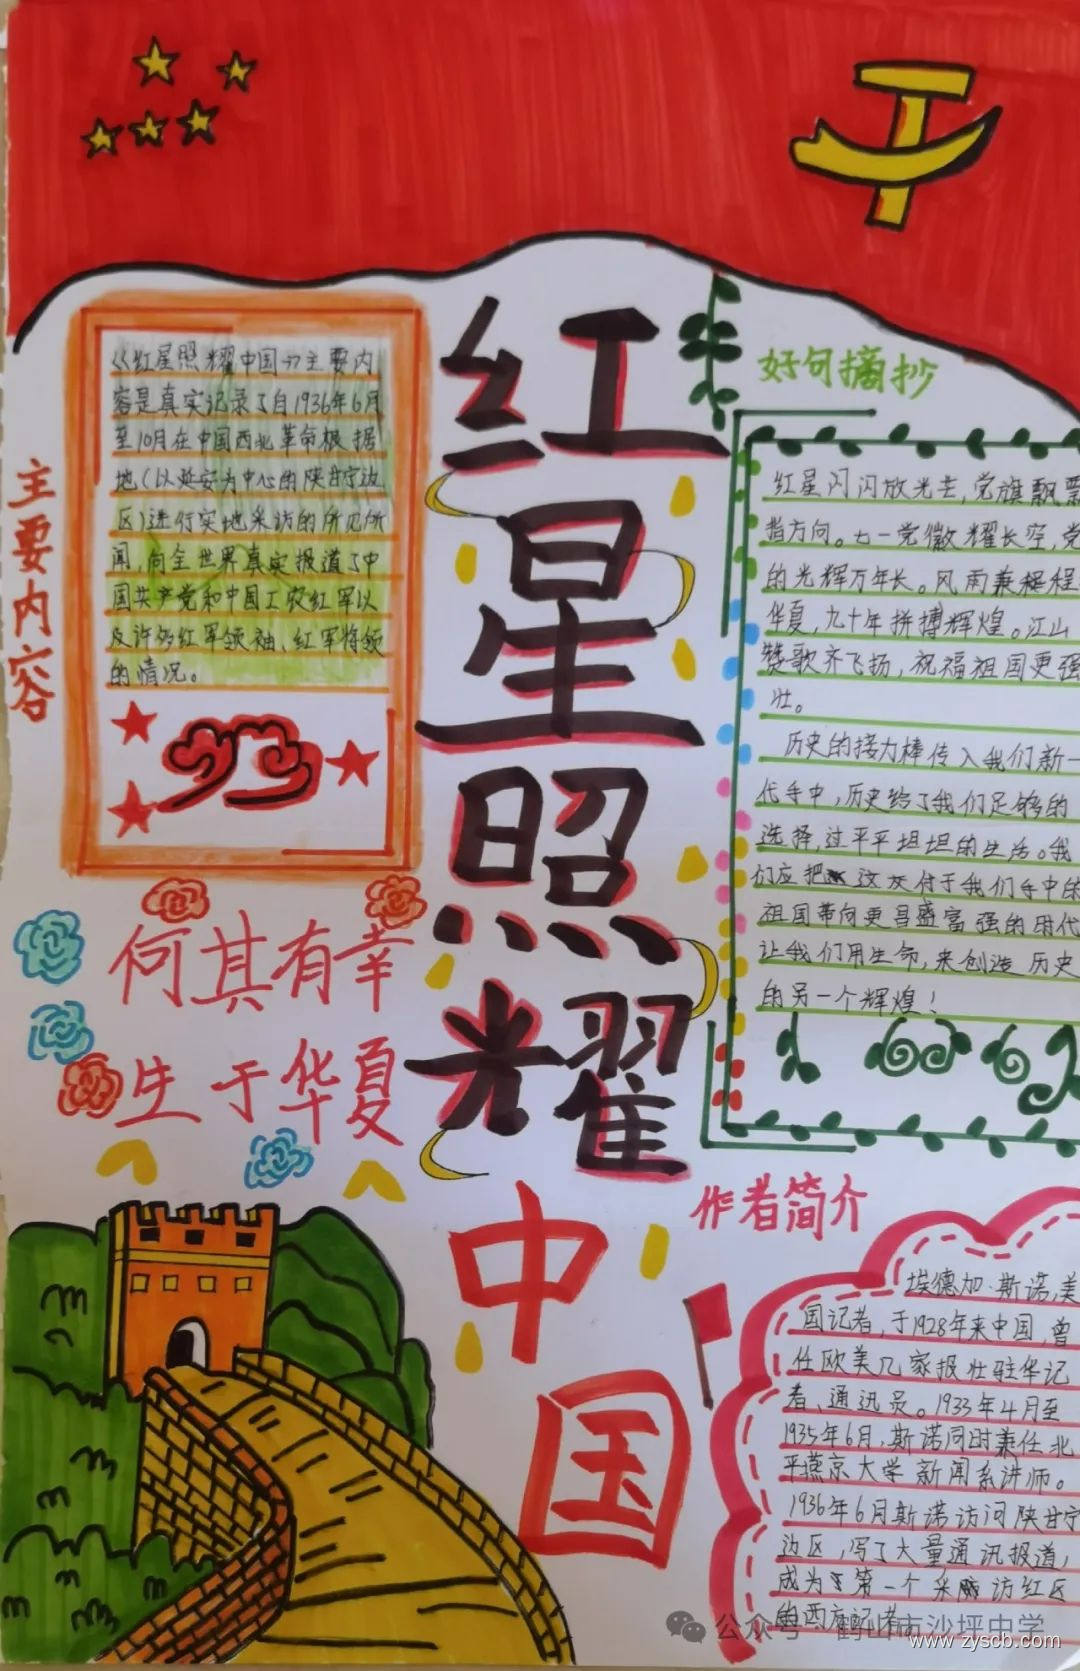 红星照耀中国
主要内容
《红星照耀中国》主要内
容是真实记录了自1936年6月
至10月在中国西北革命根据
地(以延安为中心的陕甘宁边
区)进行实地采访的所见所
闻,向全世界真实报道了中
国共产党和中国工农红军以
及许多红军领袖、红军将领
的情况。
何其有幸
生于华夏
好句摘抄
红星闪闪放光芒,党旗飘飘
指方向。七一党徽耀长空,党
的光辉万年长。风雨兼程程
华夏,九十年拼搏辉煌。江山
赞歌齐飞扬,祝福祖国更强
壮。
历史的接力棒传入我们新一
代手中,历史给了我们足够的
选择,过平平坦坦的生活。我
们应把这灰付于我们手中的
祖国带向更昌盛富强的时代
让我们用生命,来创造历史
的另一个辉煌!
作者简介
埃德加·斯诺,美
国记者,于1928年来中国,曾
任欧美几家报社驻华记
者、通讯员。1933年4月至
1935年6月,斯诺同时兼任北
平燕京大学新闻系讲师。
1936年6月斯诺访问陕甘宁
边区,写了大量通讯报道,
成为第一个采访红区
的西方记者
公众号 鹤山市沙坪中学
www.zyscb.com